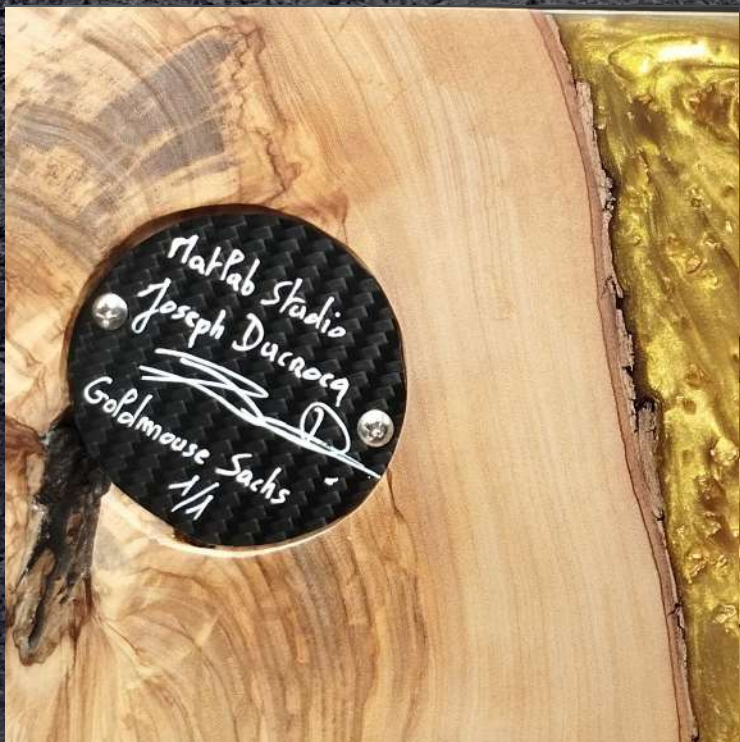 Matlab Studio
Joseph Ducrocq
Goldmouse Sachs
1/1